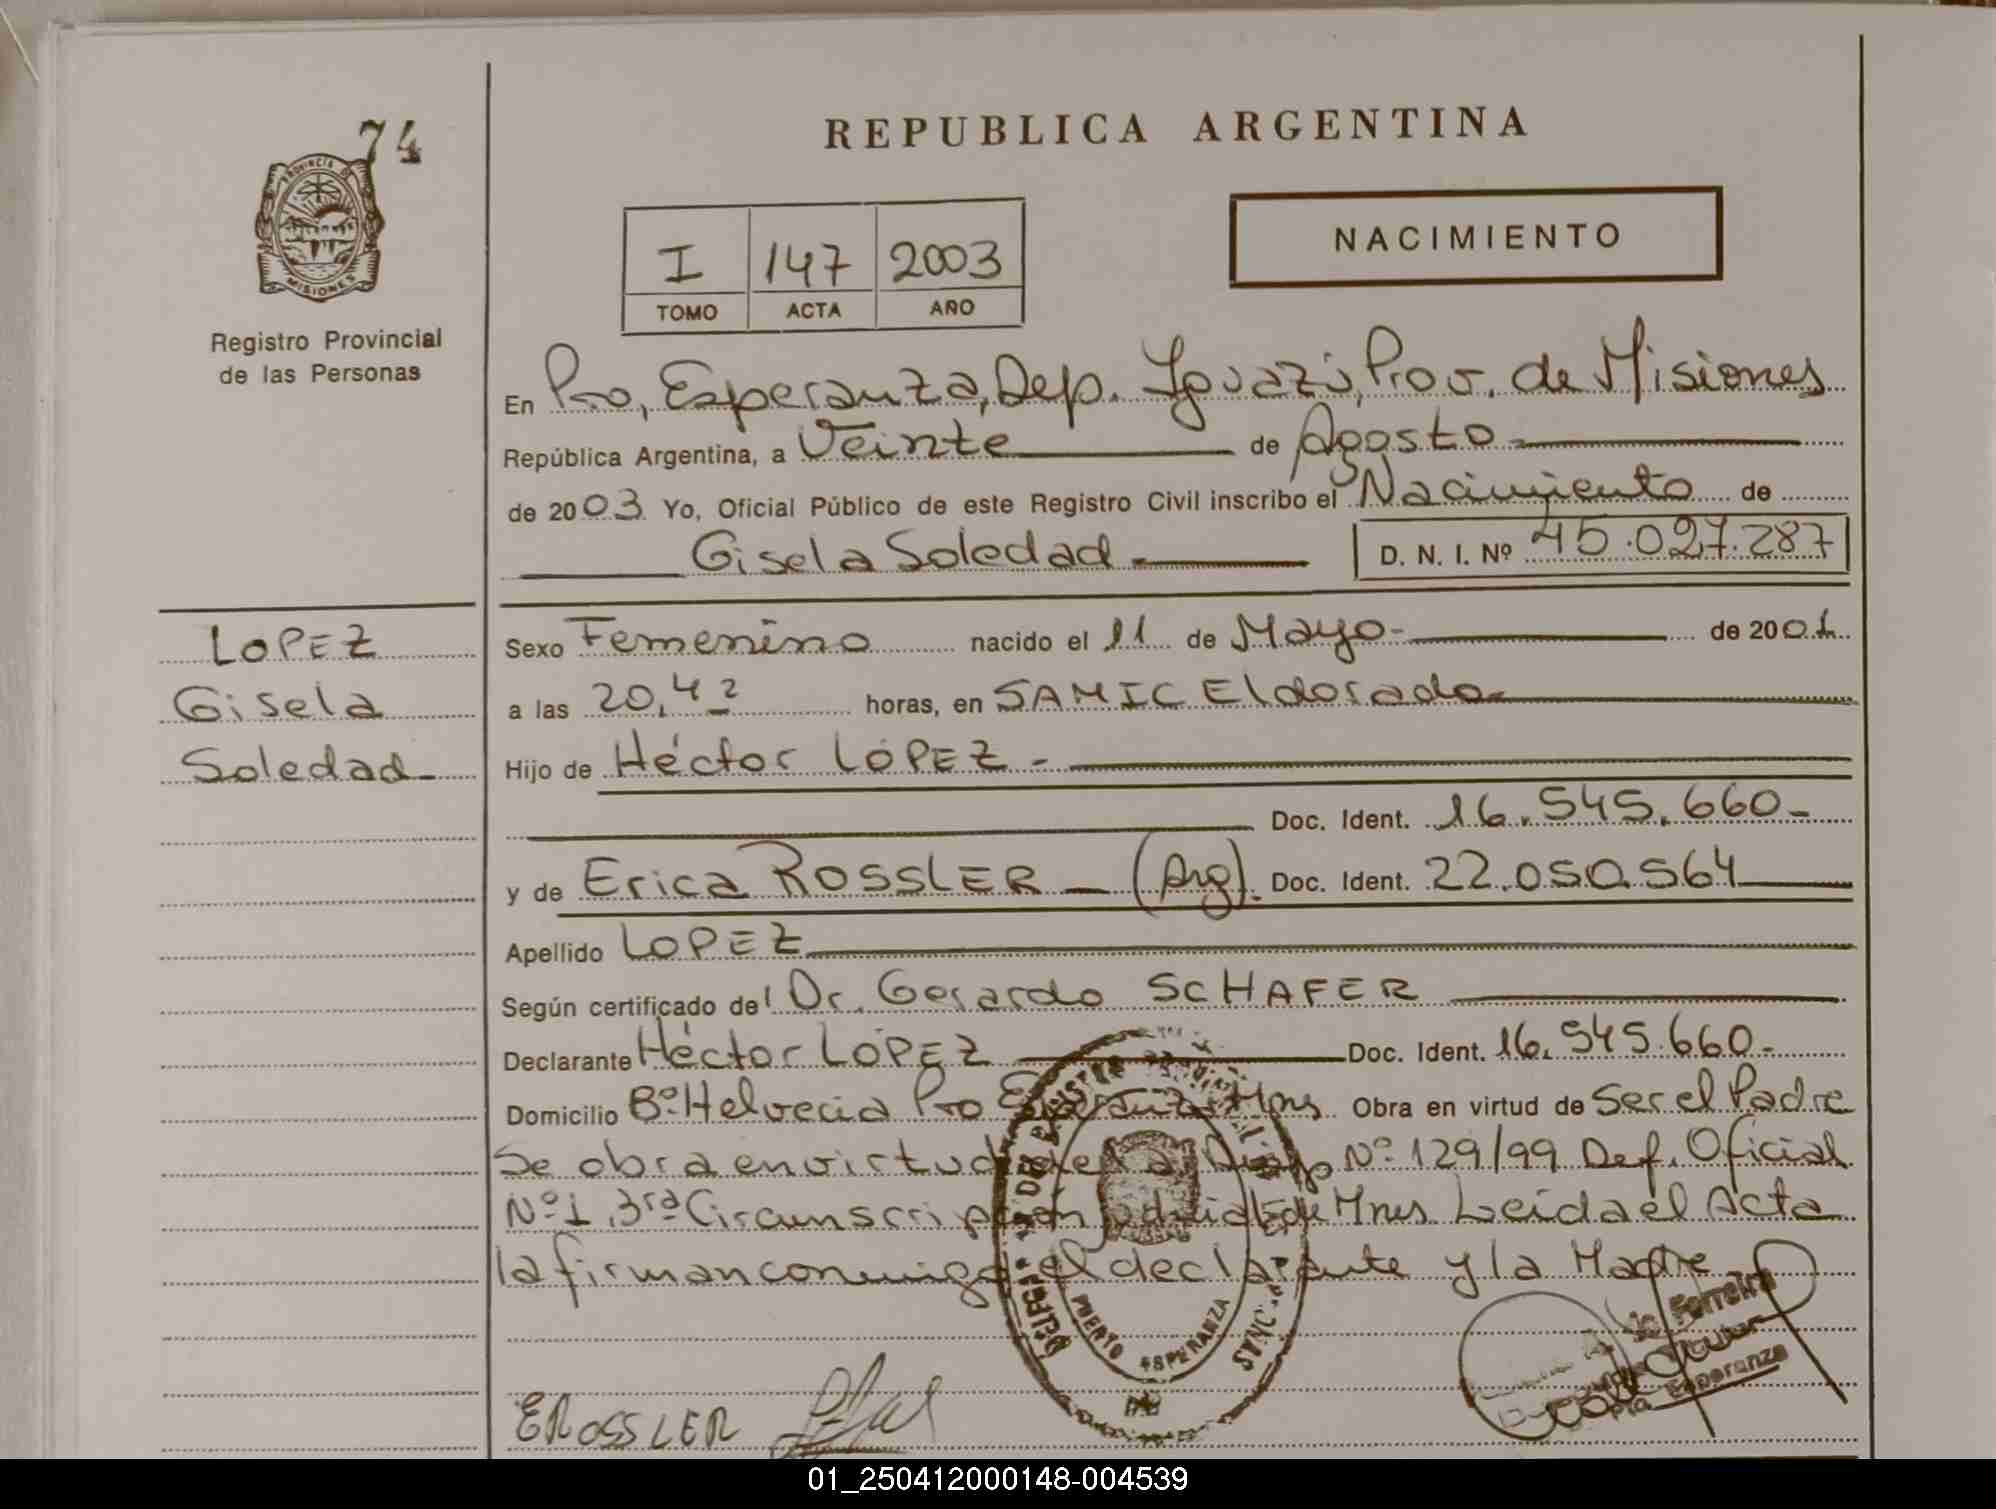 74
PROVINCIA DE
MISIONES
Registro Provincial
de las Personas
REPUBLICA ARGENTINA
I 147 2003
TOMO ACTA AÑO
NACIMIENTO
En Pto, Esperanza, Dep. Iguazú, Prov. de Misiones
República Argentina, a Veinte de Agosto
de 2003 Yo, Oficial Público de este Registro Civil inscribo el Nacimiento de
Gisela Soledad D. N. I. Nº 45.027.287
LOPEZ
Gisela
Soledad
Sexo Femenino nacido el 11 de Mayo de 2001
a las 20,42 horas, en SAMIC Eldorado
Hijo de Héctor LÓPEZ
Doc. Ident. 16.545.660
y de Erica ROSSLER (Arg). Doc. Ident. 22.050.564
Apellido LOPEZ
Según certificado del Dr. Gerardo SCHAFER
Declarante Héctor LÓPEZ Doc. Ident. 16.545.660
Domicilio Bº Helvecia Pto Esperanza Mnes Obra en virtud de Ser el Padre
Se obra en virtud de la Nº 129/99 Def. Oficial
Nº 1, 3ra Circunscripción Judicial de Mnes Leída el Acta
la firman conmigo el declarante y la Madre
PUERTO ESPERANZA
de Ferreira
Titular
Esperanza
EROSSLER
01_250412000148-004539